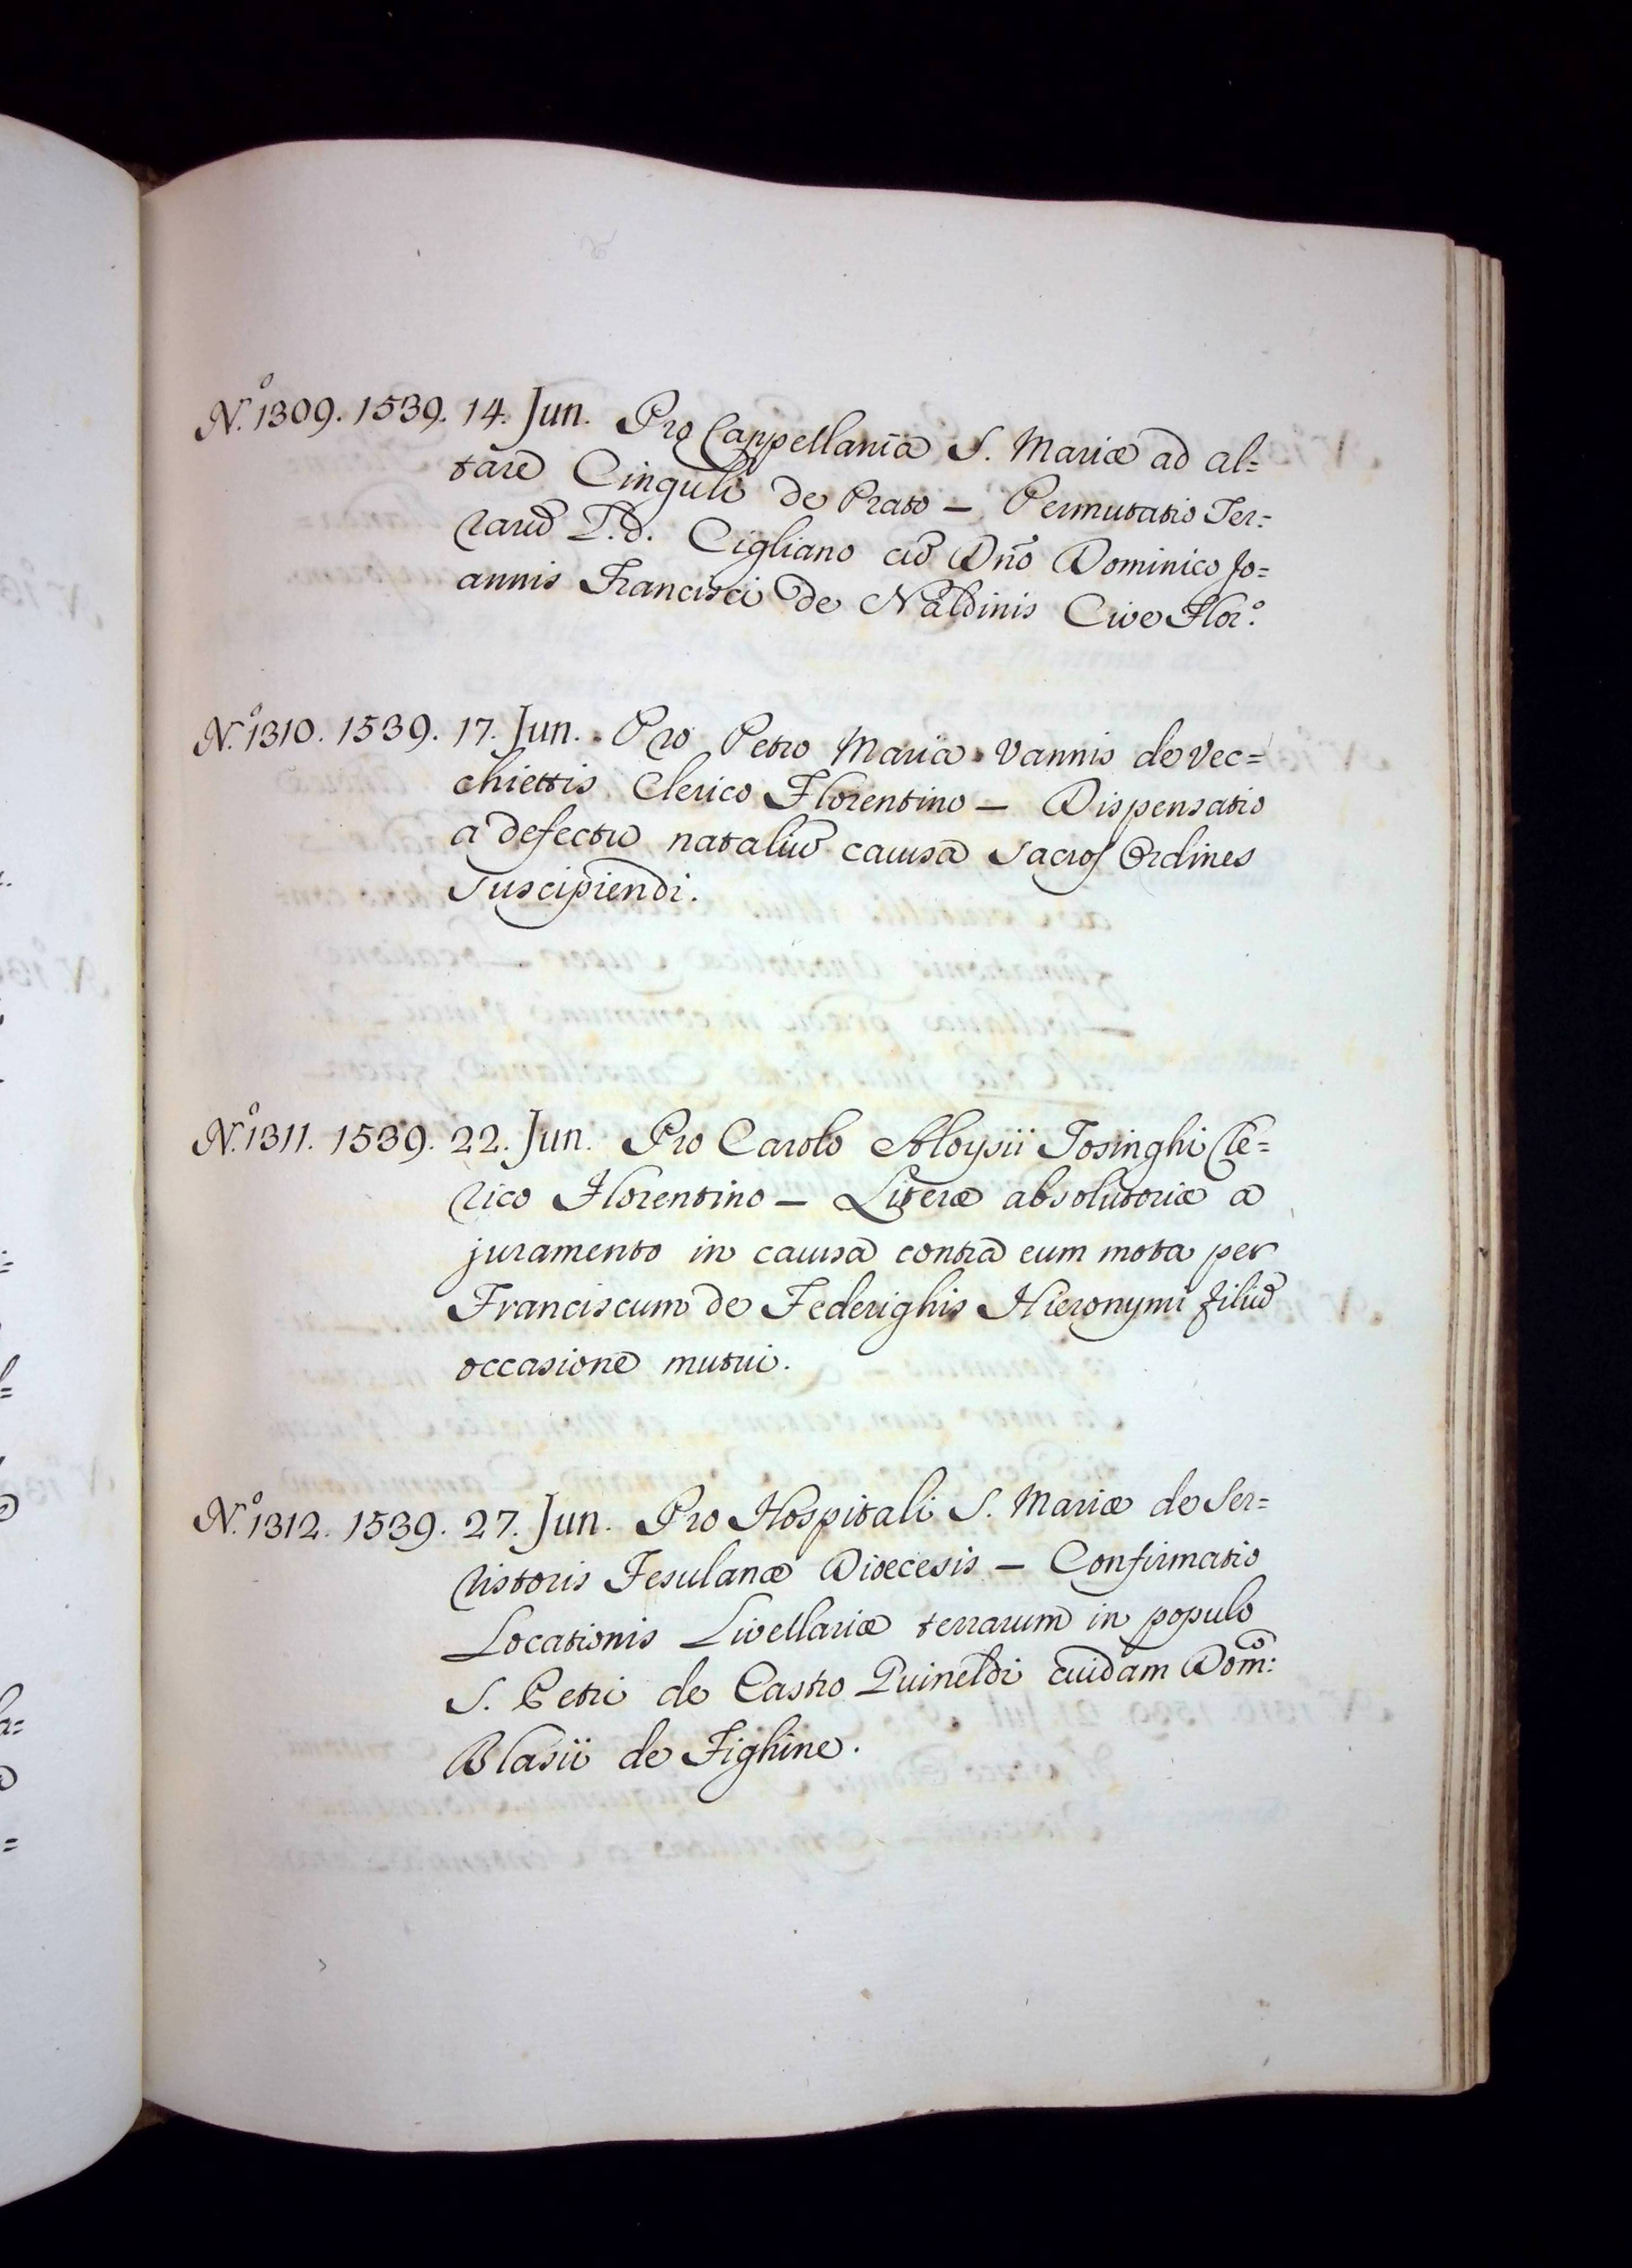 N.º 1309. 1539. 14. Jun. Pro Cappellania S. Mariæ ad al=
tare Cinguli de Prato — Permutatio Ter=
rarū L.d. Cigliano cū Dño Dominico Jo=
annis Francisci de Naldinis Cive Flor.º
N.º 1310. 1539. 17. Jun. Pro Petro Maria Vannis de Vec=
chiettis Clerico Florentino — Dispensatio
a defectu nataliū causa Sacros Ordines
Suscipiendi.
N.º 1311. 1539. 22. Jun. Pro Carolo Aloysii Tosinghi Cle=
rico Florentino — Literæ absolutoriæ a
juramento in causa contra eum mota per
Franciscum de Federighis Hieronymi filiū
occasione mutui.
N.º 1312. 1539. 27. Jun. Pro Hospitali S. Mariæ de Ser=
ristoris Fesulanæ Diœcesis — Confirmatio
Locationis Livellariæ terrarum in populo
S. Petri de Castro Guineldi cuidam Dom.º
Blasii de Fighine.